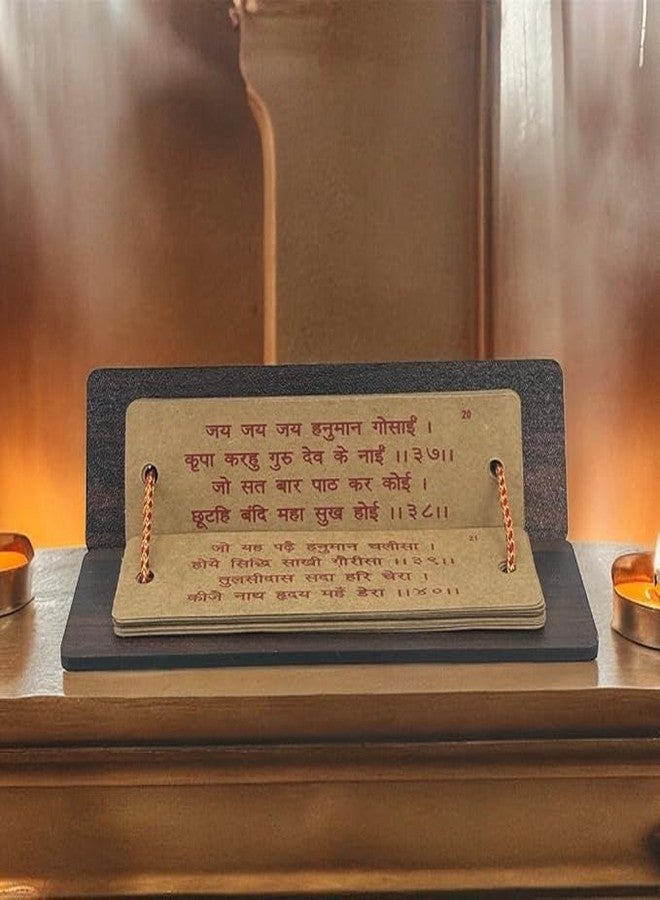 20
जय जय जय हनुमान गोसाईं ।
कृपा करहु गुरु देव के नाईं ।।३७।।
जो सत बार पाठ कर कोई ।
छूटहि बंदि महा सुख होई ।।३८।।
21
जो यह पढ़ै हनुमान चलीसा ।
होये सिद्धि साखी गौरीसा ।।३९।।
तुलसीदास सदा हरि चेरा ।
कीजै नाथ हृदय महँ डेरा ।।४०।।